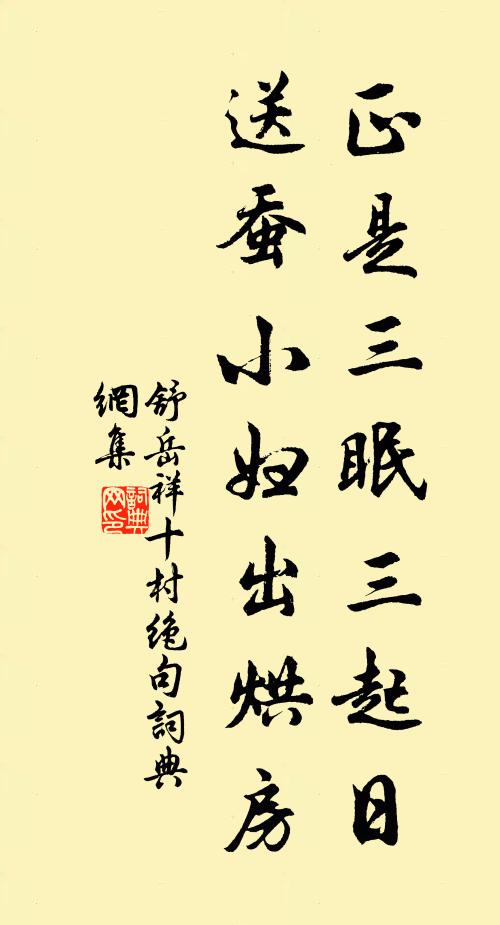 正是三眠三起日
送蚕小妇出烘房
舒岳祥十村絶句詞典
網集
詞典
网印